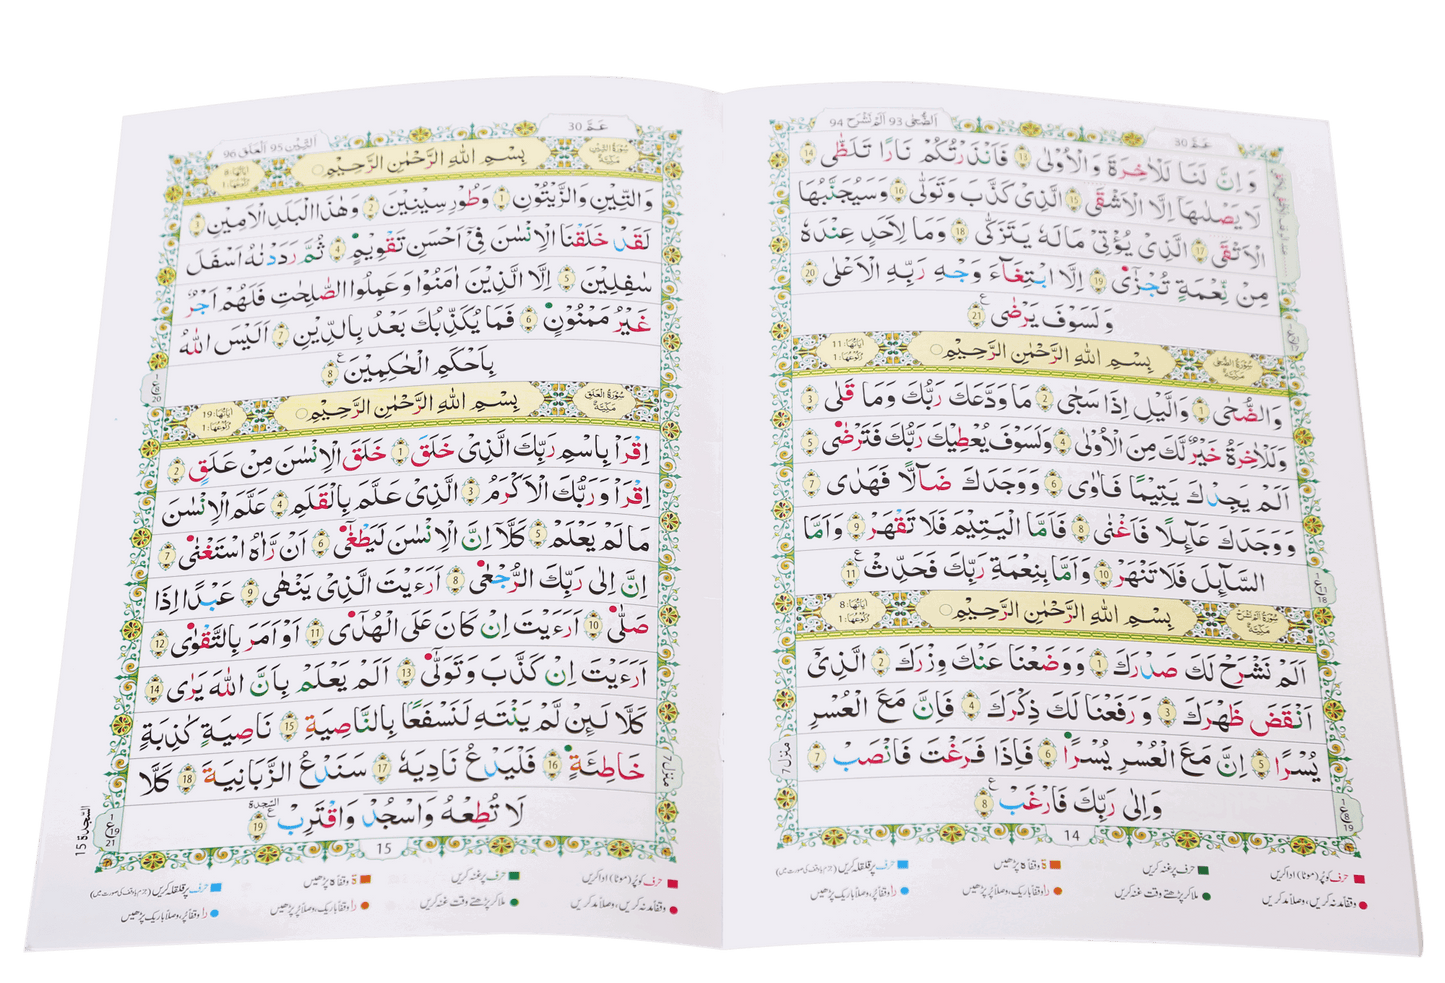 اَلضُّحٰى 93 اَلَمْ نَشْرَحْ 94
عَمَّ 30
وَ اِنَّ لَنَا لَلْاٰخِرَةَ وَ الْاُوْلٰى 13 فَاَنْذَرْتُكُمْ نَارًا تَلَظّٰى 14
لَا يَصْلٰىهَاۤ اِلَّا الْاَشْقَى 15 الَّذِىْ كَذَّبَ وَ تَوَلّٰى 16 وَ سَيُجَنَّبُهَا
الْاَتْقَى 17 الَّذِىْ يُؤْتِىْ مَالَهٗ يَتَزَكّٰى 18 وَ مَا لِاَحَدٍ عِنْدَهٗ
مِنْ نِّعْمَةٍ تُجْزٰٓى 19 اِلَّا ابْتِغَآءَ وَجْهِ رَبِّهِ الْاَعْلٰى 20
وَ لَسَوْفَ يَرْضٰى 21
سُوْرَةُ الضُّحٰى مَكِّيَّةٌ
بِسْمِ اللّٰهِ الرَّحْمٰنِ الرَّحِيْمِ
اٰيَاتُهَا: 11 رُكُوْعُهَا: 1
وَ الضُّحٰى 1 وَ الَّيْلِ اِذَا سَجٰى 2 مَا وَدَّعَكَ رَبُّكَ وَ مَا قَلٰى 3
وَ لَلْاٰخِرَةُ خَيْرٌ لَّكَ مِنَ الْاُوْلٰى 4 وَ لَسَوْفَ يُعْطِيْكَ رَبُّكَ فَتَرْضٰى 5
اَلَمْ يَجِدْكَ يَتِيْمًا فَاٰوٰى 6 وَ وَجَدَكَ ضَآلًّا فَهَدٰى 7
وَ وَجَدَكَ عَآئِلًا فَاَغْنٰى 8 فَاَمَّا الْيَتِيْمَ فَلَا تَقْهَرْ 9 وَ اَمَّا
السَّآئِلَ فَلَا تَنْهَرْ 10 وَ اَمَّا بِنِعْمَةِ رَبِّكَ فَحَدِّثْ 11
سُوْرَةُ اَلَمْ نَشْرَحْ مَكِّيَّةٌ
بِسْمِ اللّٰهِ الرَّحْمٰنِ الرَّحِيْمِ
اٰيَاتُهَا: 8 رُكُوْعُهَا: 1
اَلَمْ نَشْرَحْ لَكَ صَدْرَكَ 1 وَ وَضَعْنَا عَنْكَ وِزْرَكَ 2 الَّذِىْٓ
اَنْقَضَ ظَهْرَكَ 3 وَ رَفَعْنَا لَكَ ذِكْرَكَ 4 فَاِنَّ مَعَ الْعُسْرِ
يُسْرًا 5 اِنَّ مَعَ الْعُسْرِ يُسْرًا 6 فَاِذَا فَرَغْتَ فَانْصَبْ 7
وَ اِلٰى رَبِّكَ فَارْغَبْ 8
منزل 7
14
حرف کو پُر (موٹا) ادا کریں
حرف پر غنہ کریں
ة وقفاً ہ پڑھیں
حرف پر قلقلہ کریں (جزم یا وقف کی صورت میں)
وقفاً مد نہ کریں، وصلاً مد کریں
ملا کر پڑھتے وقت غنہ کریں
را وقفاً باریک، وصلاً پُر پڑھیں
را وقفاً پُر، وصلاً باریک پڑھیں
اَلتِّيْنِ 95 اَلْعَلَق 96
عَمَّ 30
سُوْرَةُ التِّيْنِ مَكِّيَّةٌ
بِسْمِ اللّٰهِ الرَّحْمٰنِ الرَّحِيْمِ
اٰيَاتُهَا: 8 رُكُوْعُهَا: 1
وَ التِّيْنِ وَ الزَّيْتُوْنِ 1 وَ طُوْرِ سِيْنِيْنَ 2 وَ هٰذَا الْبَلَدِ الْاَمِيْنِ 3
لَقَدْ خَلَقْنَا الْاِنْسٰنَ فِىْٓ اَحْسَنِ تَقْوِيْمٍ 4 ثُمَّ رَدَدْنٰهُ اَسْفَلَ
سٰفِلِيْنَ 5 اِلَّا الَّذِيْنَ اٰمَنُوْا وَ عَمِلُوا الصّٰلِحٰتِ فَلَهُمْ اَجْرٌ
غَيْرُ مَمْنُوْنٍ 6 فَمَا يُكَذِّبُكَ بَعْدُ بِالدِّيْنِ 7 اَلَيْسَ اللّٰهُ
بِاَحْكَمِ الْحٰكِمِيْنَ 8
سُوْرَةُ الْعَلَقِ مَكِّيَّةٌ
بِسْمِ اللّٰهِ الرَّحْمٰنِ الرَّحِيْمِ
اٰيَاتُهَا: 19 رُكُوْعُهَا: 1
اِقْرَاْ بِاسْمِ رَبِّكَ الَّذِىْ خَلَقَ 1 خَلَقَ الْاِنْسٰنَ مِنْ عَلَقٍ 2
اِقْرَاْ وَ رَبُّكَ الْاَكْرَمُ 3 الَّذِىْ عَلَّمَ بِالْقَلَمِ 4 عَلَّمَ الْاِنْسٰنَ
مَا لَمْ يَعْلَمْ 5 كَلَّاۤ اِنَّ الْاِنْسٰنَ لَيَطْغٰٓى 6 اَنْ رَّاٰهُ اسْتَغْنٰى 7
اِنَّ اِلٰى رَبِّكَ الرُّجْعٰى 8 اَرَءَيْتَ الَّذِىْ يَنْهٰى 9 عَبْدًا اِذَا
صَلّٰى 10 اَرَءَيْتَ اِنْ كَانَ عَلَى الْهُدٰٓى 11 اَوْ اَمَرَ بِالتَّقْوٰى 12
اَرَءَيْتَ اِنْ كَذَّبَ وَ تَوَلّٰى 13 اَلَمْ يَعْلَمْ بِاَنَّ اللّٰهَ يَرٰى 14
كَلَّا لَئِنْ لَّمْ يَنْتَهِ لَنَسْفَعًۢا بِالنَّاصِيَةِ 15 نَاصِيَةٍ كٰذِبَةٍ
خَاطِئَةٍ 16 فَلْيَدْعُ نَادِيَهٗ 17 سَنَدْعُ الزَّبَانِيَةَ 18 كَلَّا
لَا تُطِعْهُ وَ اسْجُدْ وَ اقْتَرِبْ 19
منزل 7
السجدة 15
15
حرف کو پُر (موٹا) ادا کریں
حرف پر غنہ کریں
ة وقفاً ہ پڑھیں
حرف پر قلقلہ کریں (جزم یا وقف کی صورت میں)
وقفاً مد نہ کریں، وصلاً مد کریں
ملا کر پڑھتے وقت غنہ کریں
را وقفاً باریک، وصلاً پُر پڑھیں
را وقفاً پُر، وصلاً باریک پڑھیں